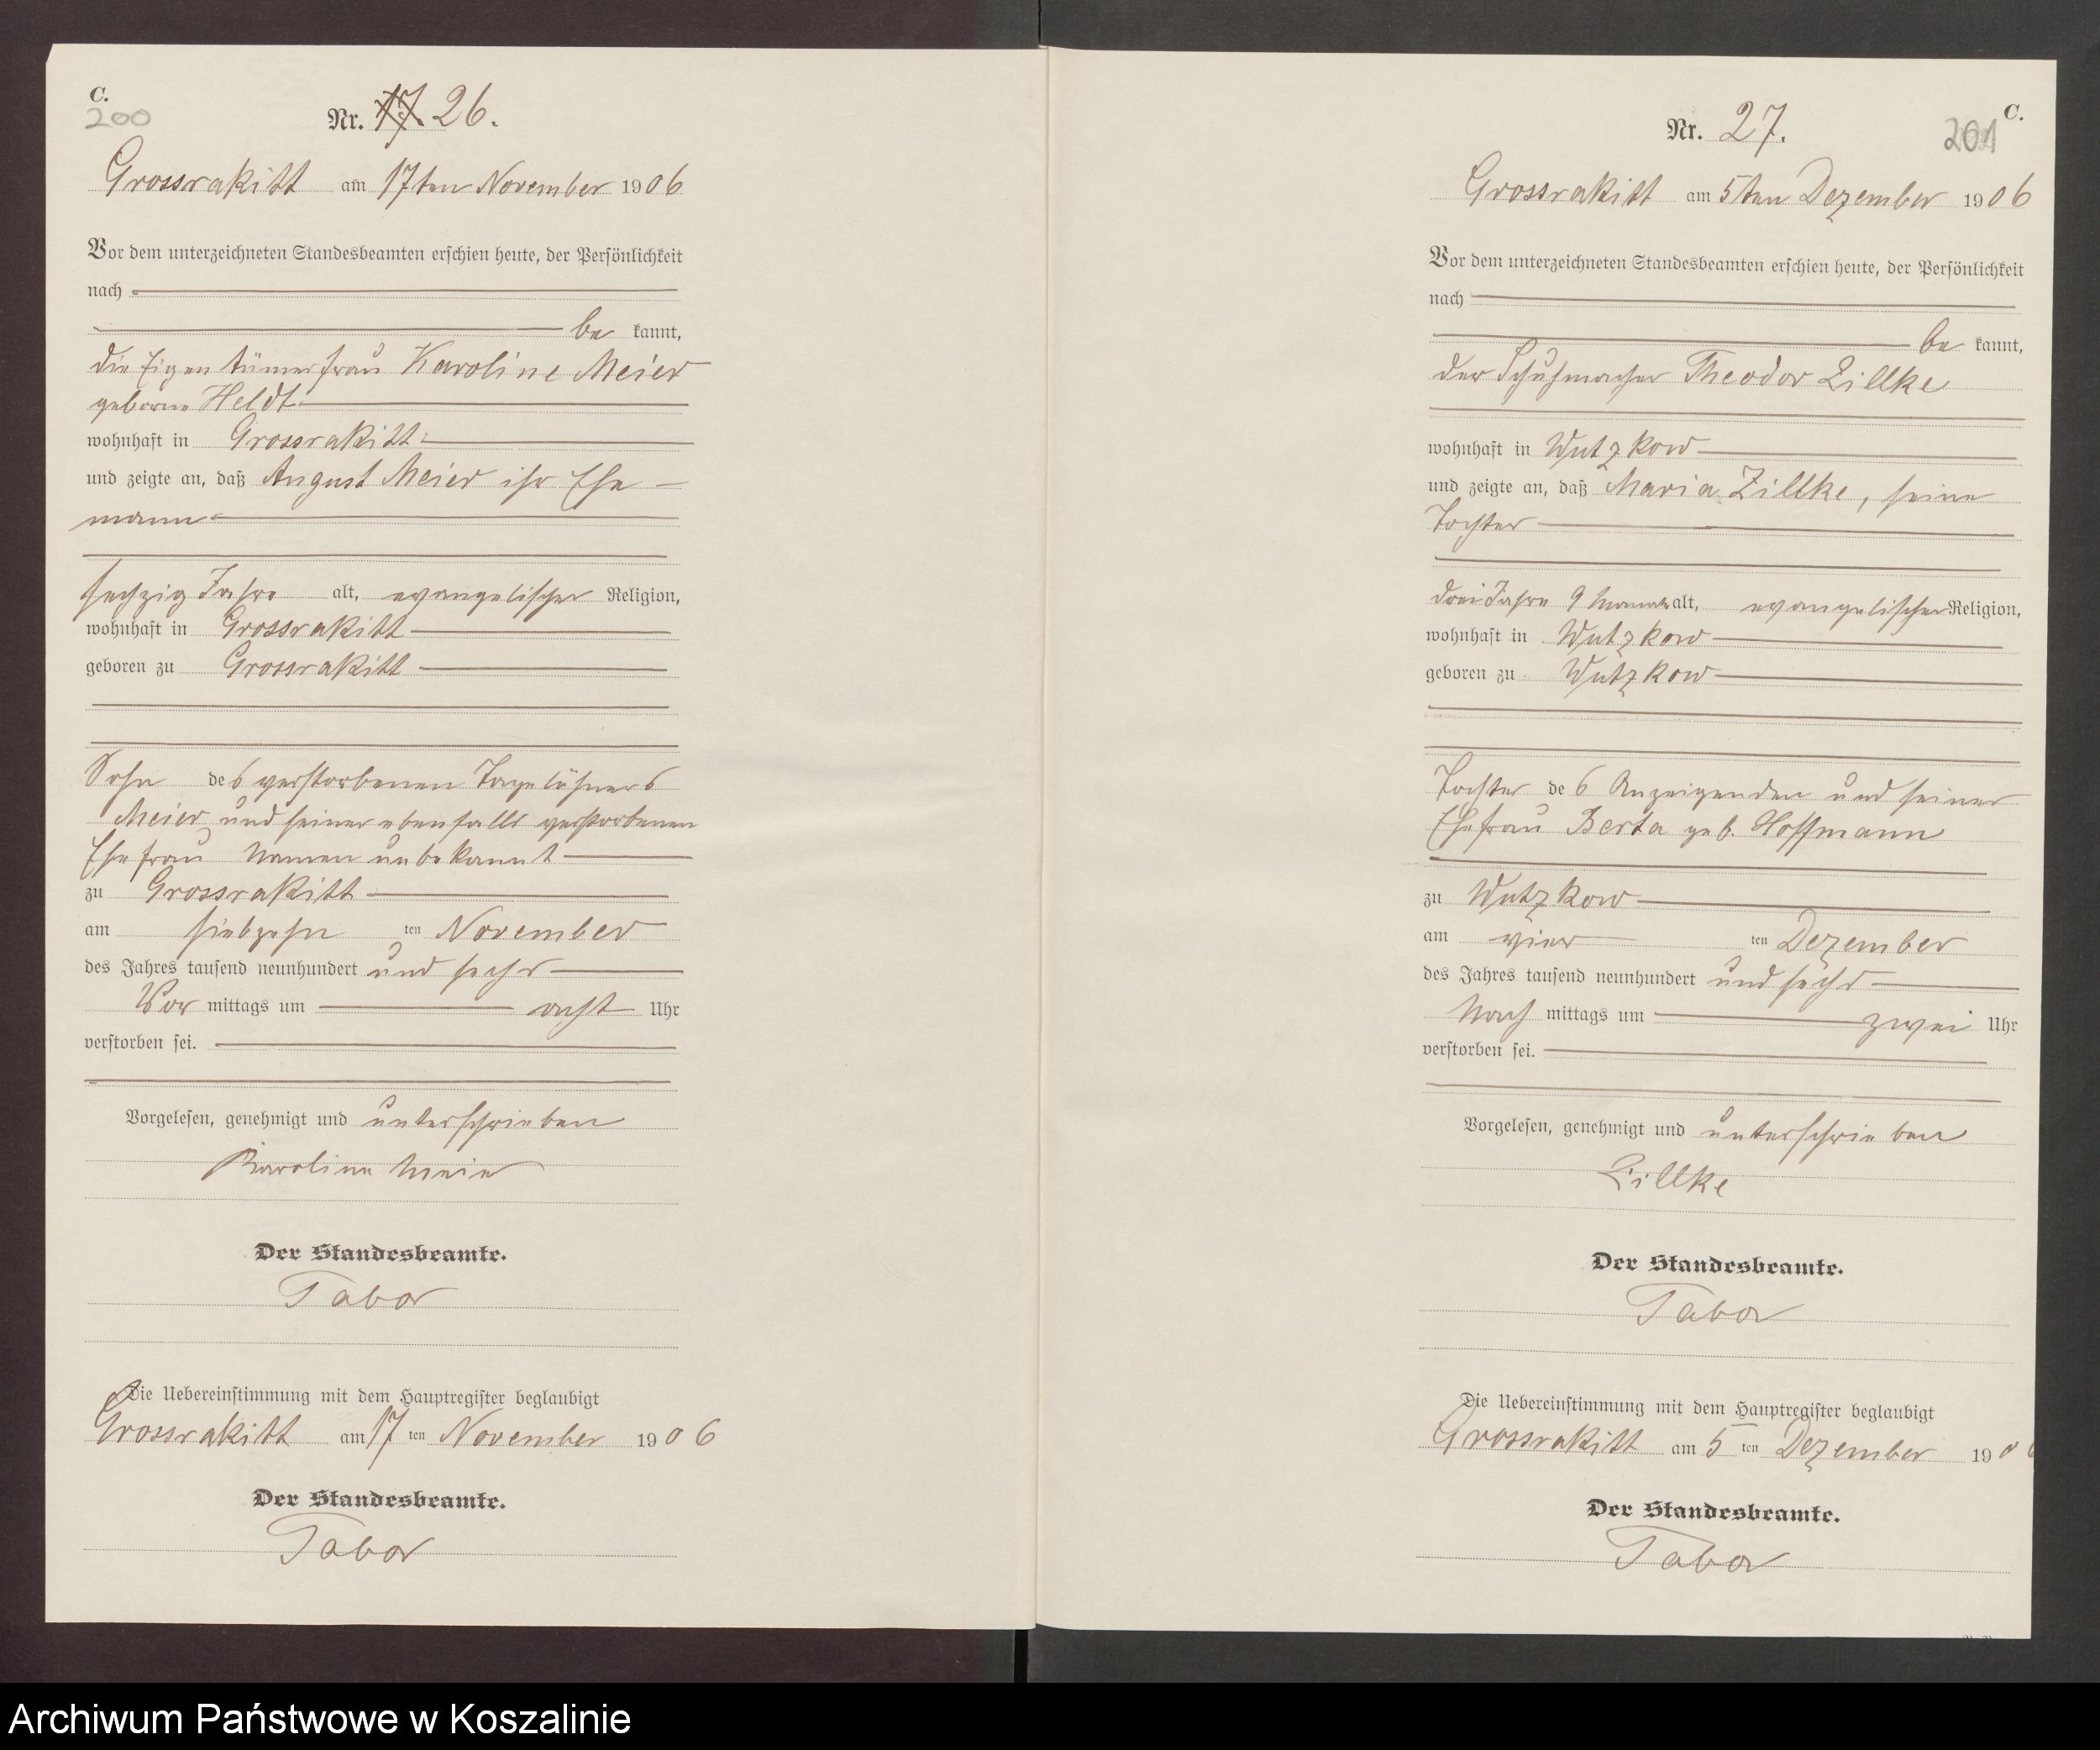 C.
200
Nr. 17. 26.
Grossrakitt am 17ten November 1906
Vor dem unterzeichneten Standesbeamten erschien heute, der Persönlichkeit
nach
be kannt,
die Eigentümerfrau Karoline Meier
geborne Heldt
wohnhaft in Grossrakitt
und zeigte an, daß August Meier ihr Ehe-
mann
sechzig Jahre alt, evangelischer Religion,
wohnhaft in Grossrakitt
geboren zu Grossrakitt
Sohn des verstorbenen Tagelöhners
Meier und seiner ebenfalls verstorbenen
Ehefrau Namen unbekannt
zu Grossrakitt
am siebzehn ten November
des Jahres tausend neunhundert und sechs
Vor mittags um acht Uhr
verstorben sei.
Vorgelesen, genehmigt und unterschrieben
Karoline Meier
Der Standesbeamte.
Tabor
Die Uebereinstimmung mit dem Hauptregister beglaubigt
Grossrakitt am 17 ten November 1906
Der Standesbeamte.
Tabor
C.
Nr. 27.
201
Grossrakitt am 5ten Dezember 1906
Vor dem unterzeichneten Standesbeamten erschien heute, der Persönlichkeit
nach
be kannt,
der Schuhmacher Theodor Zillke
wohnhaft in Wutzkow
und zeigte an, daß Maria Zillke, seine
Tochter
drei Jahre 9 Monate alt, evangelischer Religion,
wohnhaft in Wutzkow
geboren zu Wutzkow
Tochter des Anzeigenden und seiner
Ehefrau Berta geb. Hoffmann
zu Wutzkow
am vier ten Dezember
des Jahres tausend neunhundert und sechs
Nach mittags um zwei Uhr
verstorben sei.
Vorgelesen, genehmigt und unterschrieben
Zillke
Der Standesbeamte.
Tabor
Die Uebereinstimmung mit dem Hauptregister beglaubigt
Grossrakitt am 5 ten Dezember 190
Der Standesbeamte.
Tabor
Archiwum Państwowe w Koszalinie